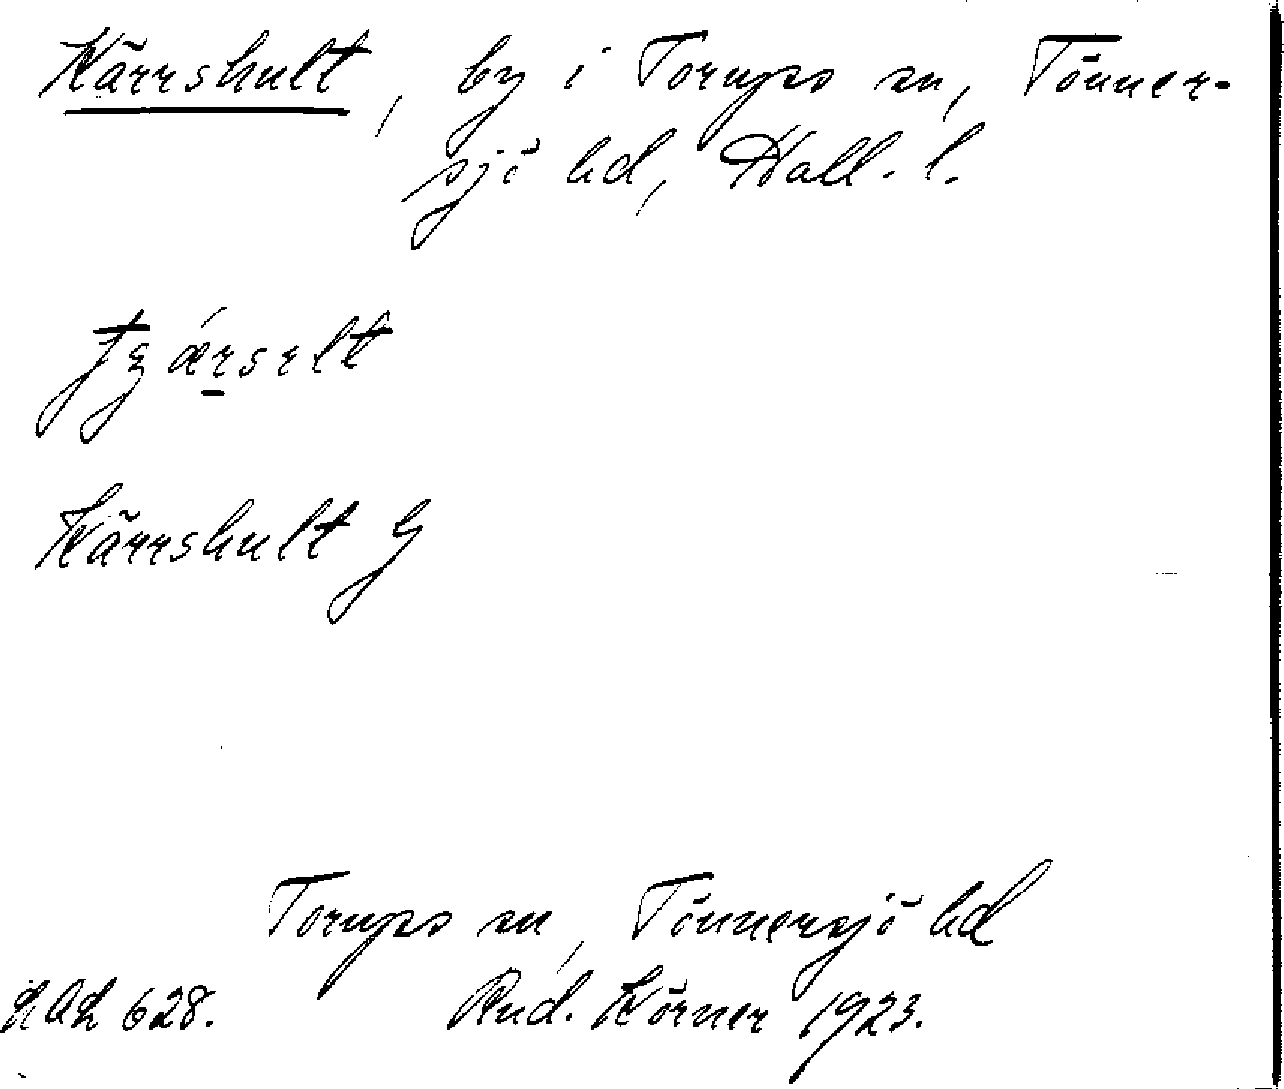 Kärrshult, by i Torups sn, Tönner-
sjö hd, Hall. l.
Kärrshult G
Torups sn, Tönnersjö hd
LAL 628. Rud. Körner 1923.